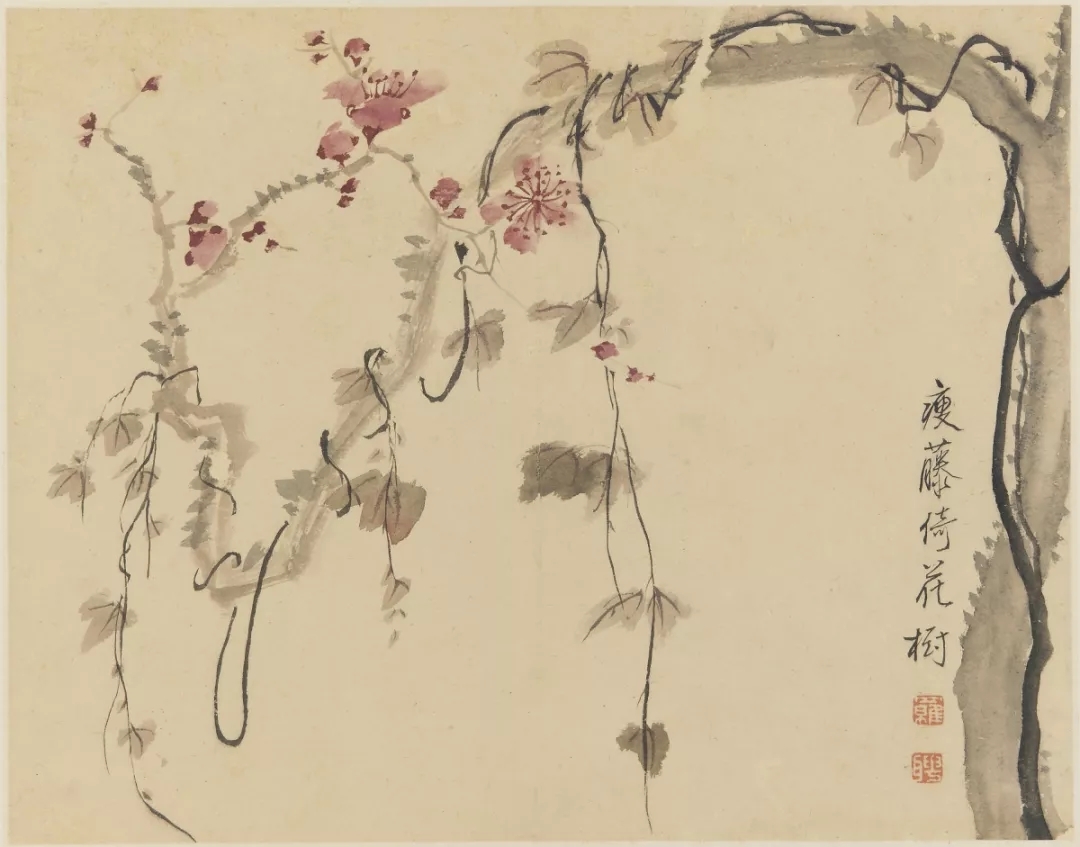 瘦藤倚花樹
羅
聘